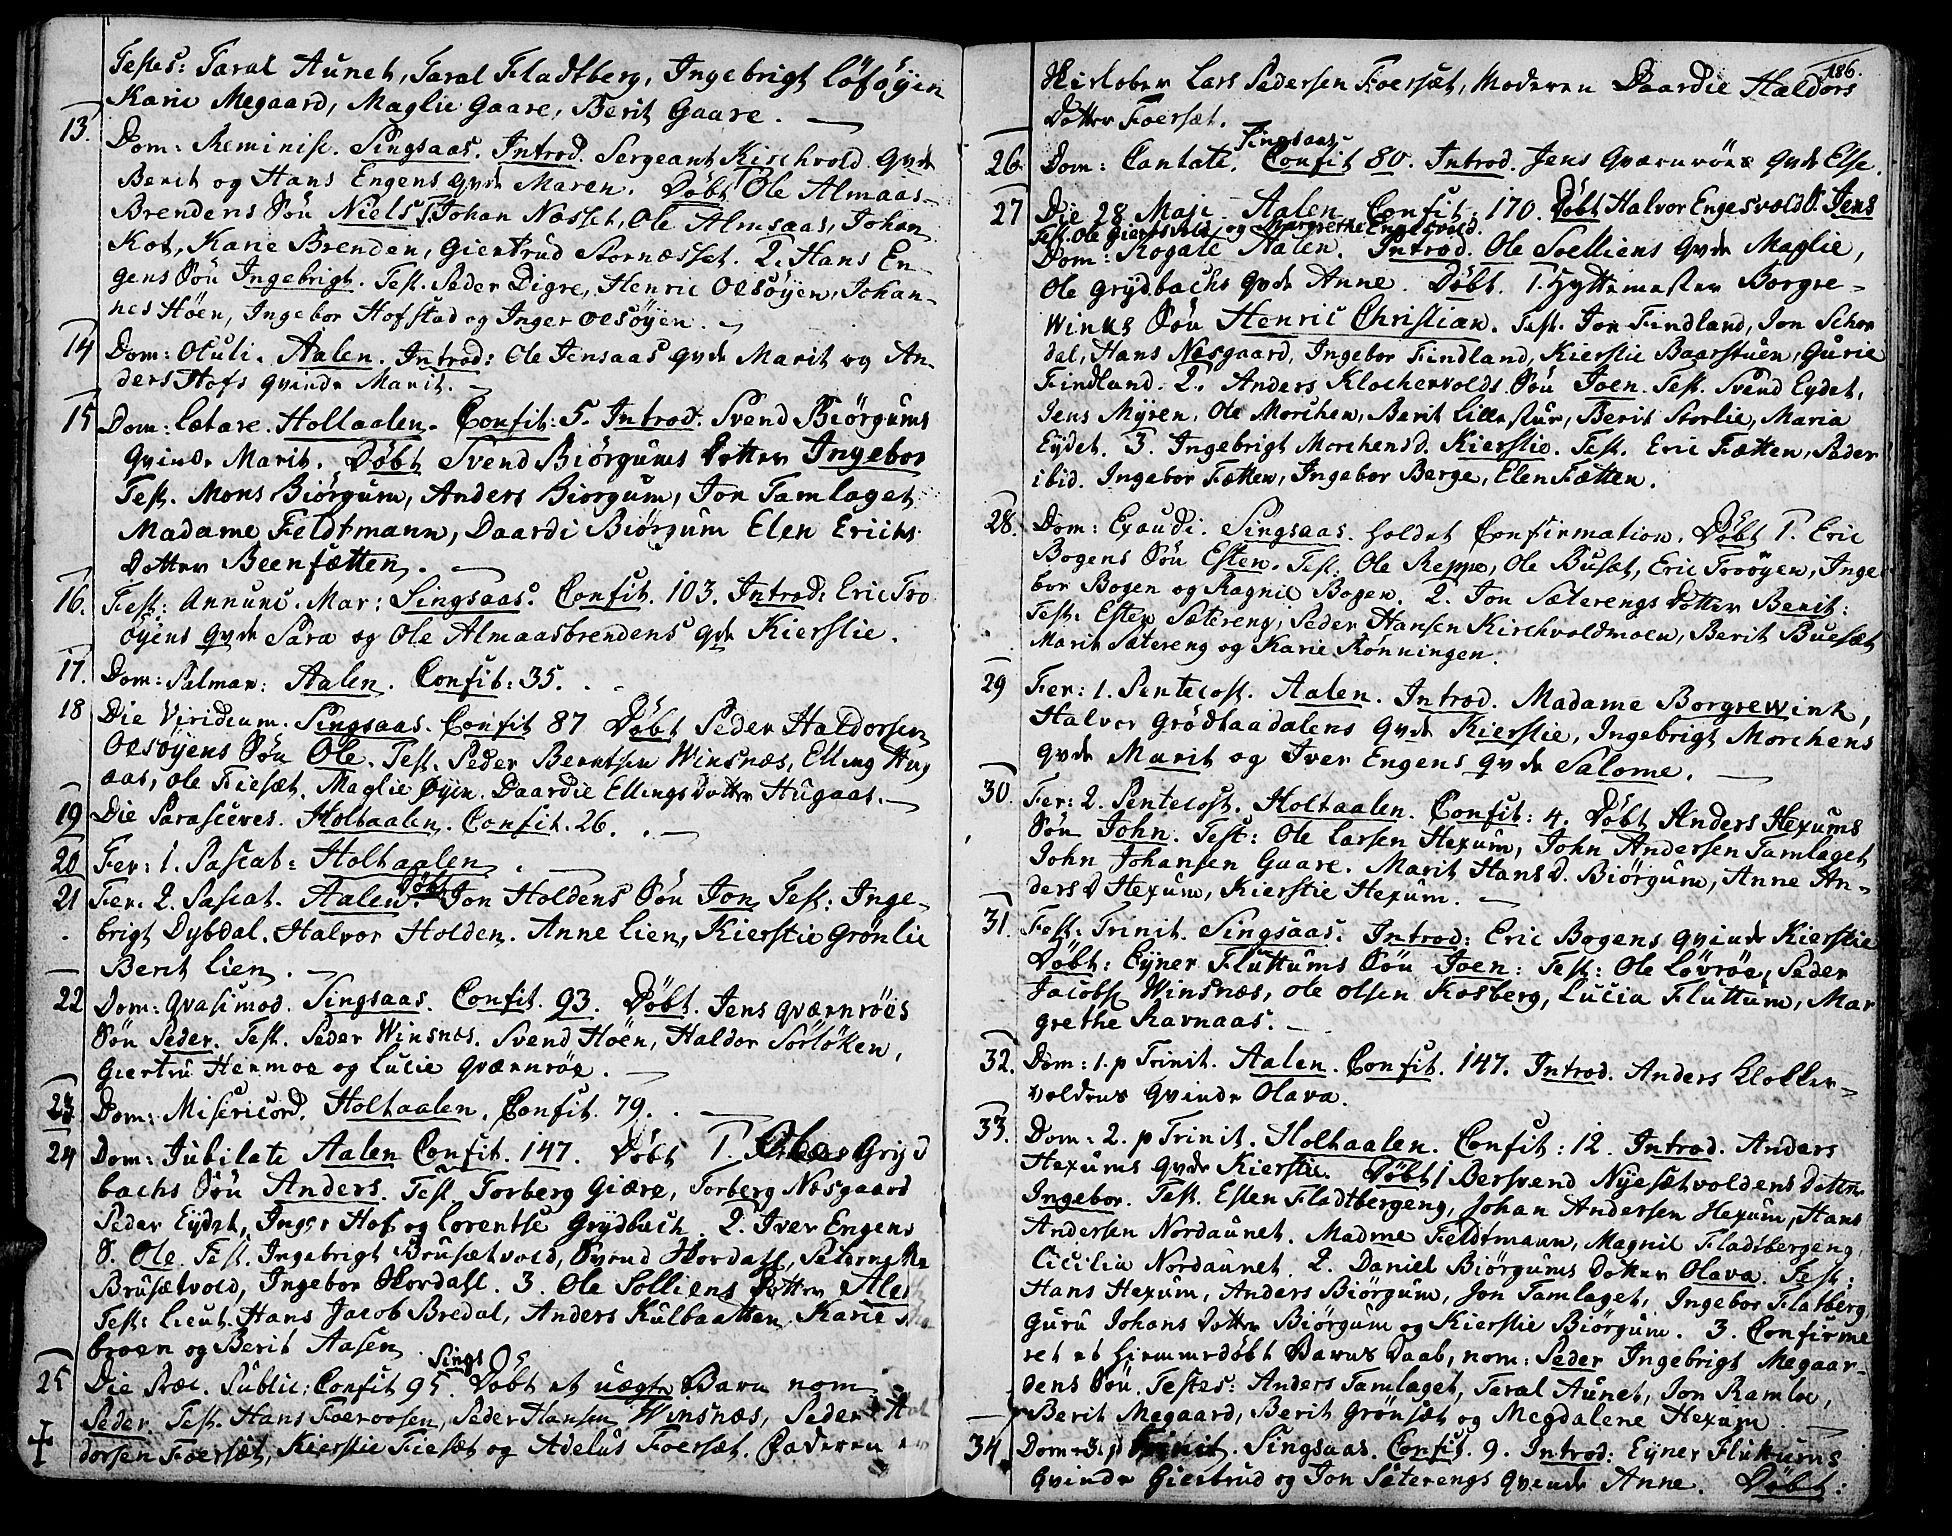 Testes: Taral Aunet, Taral Fladtberg, Ingebrigt Löföyen
Karie Megaard, Maglie Gaare, Berit Gaare.
13. Dom: Reminisc. Singsaas. Introd. Sergeant Kirchvold qvde
Berit og Hans Engens qvde Maren. Döbt 1 Ole Almaas-
Brendens Sön Niels. T. Johan Næsset, Ole Almsaas, Johan
Kot, Karie Brenden, Giertrud Stornæsset. 2. Hans En-
gens Sön Ingebrigt. Test. Peder Digre, Henric Oesöyen, Johan-
nes Höen, Ingebor Hofstad og Inger Oesöyen.
14 Dom: Oculi. Aalen. Introd: Ole Jensaas qvde Marit og An-
ders Hofs qvinde Marit.
15 Dom: Lætare. Holtaalen. Confit: 5. Introd. Svend Biörgums
Qvinde Marit. Döbt Svend Biörgums Dotter Ingebor
Test. Mons Biörgum, Anders Biörgum, Jon Tamlaget
Madame Feldtmann, Daardi Biörgum Elen Erichs
Dotter Beenfætten.
16. Fest: Annunc. Mar: Singsaas. Confit. 103. Introd: Eric Tro
öyens qvde Sara og Ole Almaasbrendens qde Kierstie.
17. Dom: Palmar: Aalen. Confit: 35.
18 Die Viridium. Singsaas. Confit 87 Döbt Peder Haldorsen
Oesöyens Sön Ole. Test. Peder Berntsen Winsnæs, Elling Hug
aas, Ole Fiesæt. Maglie Öyen. Daardie Ellings dotter Hugaas.
19 Die Parasceves. Holtaalen. Confit. 26.
20 Fer: 1. Pascat: Holtaalen
21 Fer. 2. Pascat. Aalen. Döbt Jon Holdens Sön Jon Test: Inge-
brigt Dybdal. Halvor Holden. Anne Lien, Kierstie Grönlie
Berit Lien.
22 Dom: Qvasimod. Singsaas. Confit. 93. Döbt. Jens Qværnröes
Sön Peder. Test. Peder Winsnes. Svend Höen, Haldor Sörlöken,
Giertru Henmoe og Lucie Qværnröe.
23 Dom: Misericord. Holtaalen. Confit. 79.
24 Dom: Jubilate Aalen Confit. 147. Döbt 1. Gryd
bachs Sön Anders. Test Torberg Giære, Torberg Næsgaard
Peder Eydet, Inger Hof og Lorentse Grydbach 2. Iver Engens
S. Ole. Test. Ingebrigt Brusætvold, Svend Hordall,
Brusætvold, Ingebor Hordall. 3. Ole Solliens Dotter
Test: Lieut. Hans Jacob Bredal, Anders Kulbaatten Karie
broen og Berit Aasen
25 Die Præc. Public: Confit 95. Sings Döbt et uægte Barn nom:
Peder. Test. Hans Foeroosen, Peder Hansen Winsnæs, Peder
dorsen Foersæt, Kierstie Fiesæt og Adelus Foersæt. Faderen
186.
Lars Pedersen Foersæt, Moderen Daardie Haldors
Dotter Foersæt.
26. Dom: Cantate. Singsaas Confit 80. Introd. Jens Qværnröes Qvde Else.
27 Die 28 Maji Aalen Confit. 170. Döbt Halvor Engesvolds S. Jens
Test. Ole Giersvold og Margrethe Engesvold.
Dom: Rogate Aalen. Introd. Ole Soelliens Qvde Maglie,
Ole Grydbachs qvde Anne. Döbt. 1. Hyttemester Borgre-
winks Sön Henric Christian. Test. Jon Findland, Jon Schor
dal, Hans Næsgaard, Ingebor Findland, Kierstie Baarstuen, Gurie
Findland. 2. Anders Klochervolds Sön Joen. Test. Svend Eydet,
Jens Myren. Ole Morchen, Berit Lillestue, Berit Storlie, Maria
Eydet. 3. Ingebrigt Morchens d. Kierstie. Test. Eric Fætten, Peder
ibid. Ingebor Fætten, Ingebor Berge, Elen Fætten.
28. Dom: Exaudi. Singsaas. holdet Confirmation. Döbt 1. Eric
Bogens Sön Esten. Test. Ole Reppe, Ole Buset, Eric Troöyen, Inge
bor Bogen og Ragnil Bogen. 2. Jon Sæterengs Dotter Berit:
Test: Esten Sætereng, Peder Hansen Kirchvoldmoen, Berit Buesæt
Marit Sætereng og Karie Rönningen.
29 Fer: 1. Pentecost. Aalen. Introd. Madame Borgrewink,
Halvor Grödtaadalens Qvde Kierstie, Ingebrigt Morchens
qvde Marit og Iver Engens qvde Salome.
30. Fer: 2. Pentecost. Holtaalen. Confit: 4. Döbt Anders Hexums
Sön John. Test: Ole Larsen Hexum, John Andersen Tamlaget
John Johansen Gaare. Marit Hans D. Biörgum, Anne An-
ders D Hexum, Kierstie Hexum.
31. Fest: Trinit. Singsaas. Introd: Eric Bogens qvinde Kierstie
Döbt: Eyner Fluttums Sön Joen: Test: Ole Lövröe, Peder
Jacobs. Winsnæs, Ole Olsen Kosberg, Lucia Fluttum, Mar
grethe Ravnaas.
32. Dom: 1. p Trinit. Aalen. Confit. 147. Introd. Anders Klokker-
voldens Qvinde Olava.
33. Dom: 2. p Trinit. Holtaalen. Confit: 12. Introd. Anders
Hexums Qvde Kierstie. Döbt 1 Bersvend Nyesætvoldens Dotter
Ingebor. Test. Esten Fladtbergeng, Johan Andersen Hexum, Hans
Andersen Nordaunet. Madme Feldtmann, Magnil Fladtbergeng,
Cicilia Nordaunet. 2. Daniel Biörgums dotter Olava. Test:
Hans Hexum, Anders Biörgum, Jon Tamlaget, Ingebor Flatberg
Guru Johans Dotter Biörgum og Kierstie Biörgum. 3. Confirme
ret et hiemmedöbt Barns Daab, nom: Peder Ingebrigt Megaar-
dens Sön. Testes: Anders Tamlaget, Taral Aunet, Jon Ramloe,
Berit Megaard, Berit Grönsæt og Megdalene Hexum.
34. Dom: 3. p Trinit. Singsaas. Confit. 9. Introd: Eyner Fluttums
Qvinde Giertrud og Jon Sæterengs Qvinde Anne. Döbt: